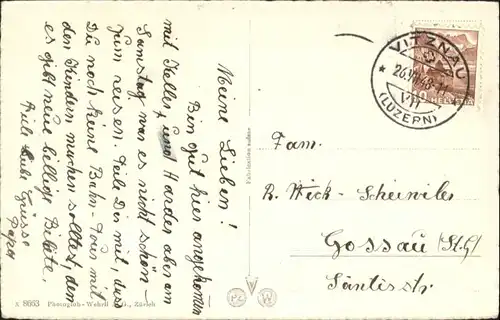 Meine Lieben!
Bin gut hier angekommen
mit Keller und Harder aber am
Samstag war es nicht schön
zum reisen. Teile Dir mit, dass
Du noch keine Bahn-Tour mit
den Kindern machen solltest, denn
es gibt neue billige Billete.
Viele liebe Grüsse
Papa
VITZNAU
26.VII.43-11
VII
(LUZERN)
HELVETIA
Fam.
R. Wick-
Gossau (St.G)
Säntisstr.
A 8663 Photoglob-Wehrli A.G., Zürich
PZ W